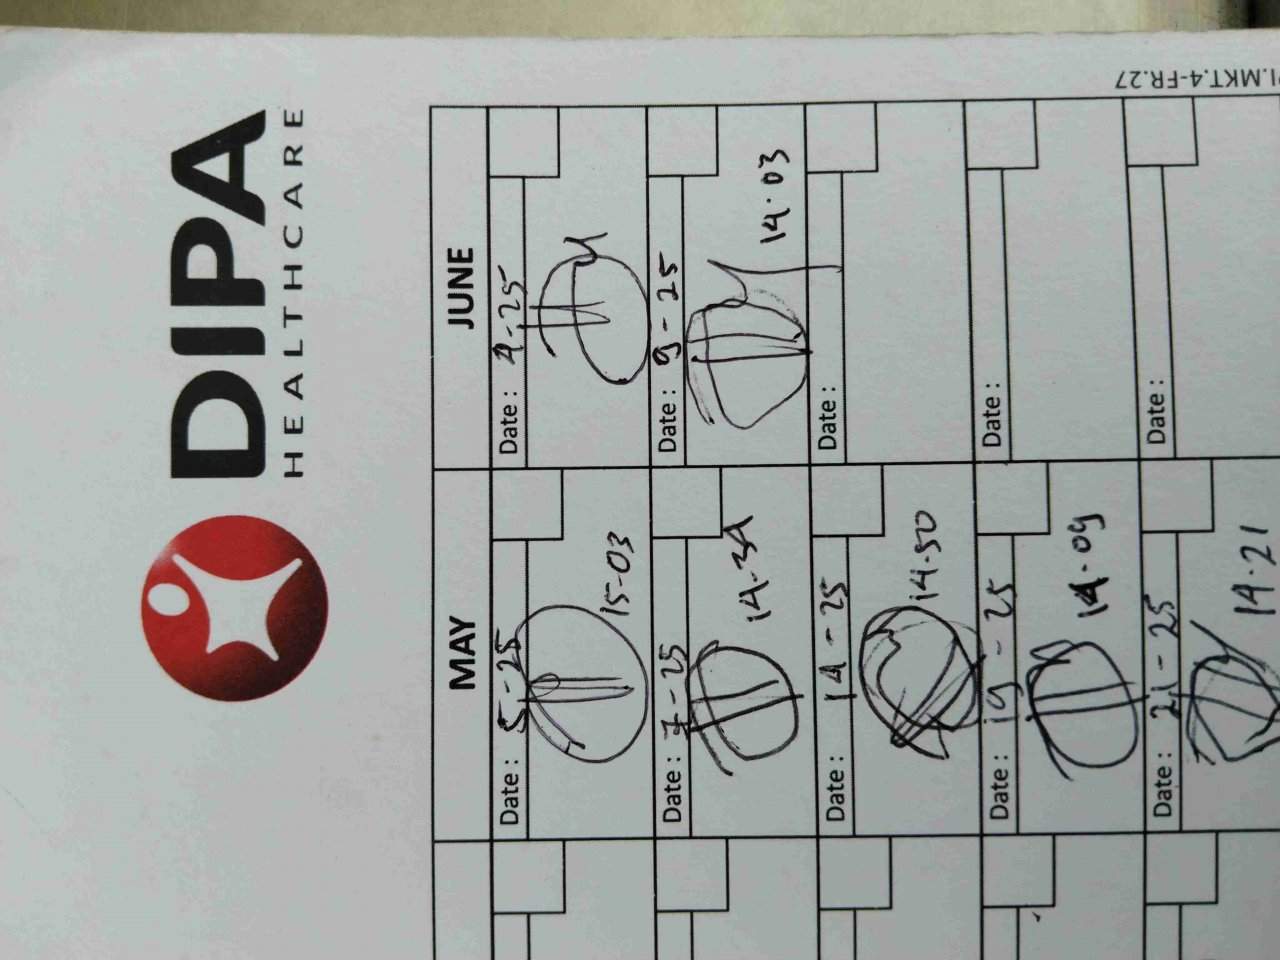 PI.MKT.4-FR.27
DIPA
HEALTHCARE
MAY
JUNE
Date : 5-25
15-03
Date : 4-25
Date : 7-25
14-34
Date : 9-25
14.03
Date : 14-25
14.50
Date :
Date : 19-25
14.09
Date :
Date : 21-25
14.21
Date :